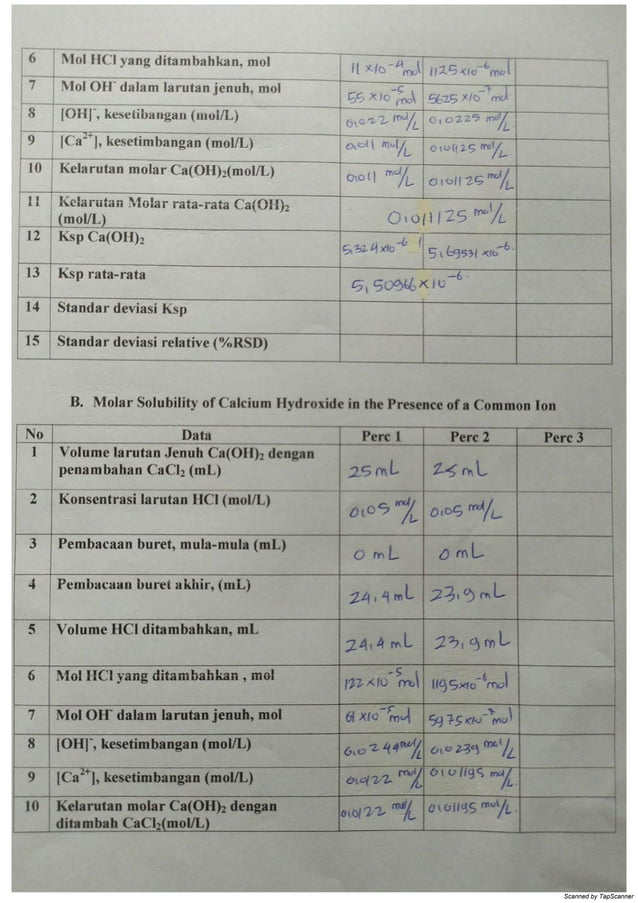 6 Mol HCl yang ditambahkan, mol 11 x10⁻⁴ mol 1125 x10⁻⁶ mol
7 Mol OH⁻ dalam larutan jenuh, mol 55 x10⁻⁵ mol 5625 x10⁻⁷ mol
8 [OH]⁻, kesetibangan (mol/L) 0,022 mol/L 0,0225 mol/L
9 [Ca²⁺], kesetimbangan (mol/L) 0,011 mol/L 0,01125 mol/L
10 Kelarutan molar Ca(OH)₂(mol/L) 0,011 mol/L 0,01125 mol/L
11 Kelarutan Molar rata-rata Ca(OH)₂
(mol/L) 0,011125 mol/L
12 Ksp Ca(OH)₂ 5,324 x10⁻⁶ 5,69531 x10⁻⁶
13 Ksp rata-rata 5,50966 x 10⁻⁶
14 Standar deviasi Ksp
15 Standar deviasi relative (%RSD)
B. Molar Solubility of Calcium Hydroxide in the Presence of a Common Ion
No Data Perc 1 Perc 2 Perc 3
1 Volume larutan Jenuh Ca(OH)₂ dengan
penambahan CaCl₂ (mL) 25 mL 25 mL
2 Konsentrasi larutan HCl (mol/L) 0,05 mol/L 0,05 mol/L
3 Pembacaan buret, mula-mula (mL) 0 mL 0 mL
4 Pembacaan buret akhir, (mL) 24,4 mL 23,9 mL
5 Volume HCl ditambahkan, mL 24,4 mL 23,9 mL
6 Mol HCl yang ditambahkan , mol 122 x10⁻⁵ mol 1195 x10⁻⁶ mol
7 Mol OH⁻ dalam larutan jenuh, mol 61 x10⁻⁵ mol 5975 x10⁻⁷ mol
8 [OH]⁻, kesetimbangan (mol/L) 0,0244 mol/L 0,0239 mol/L
9 [Ca²⁺], kesetimbangan (mol/L) 0,0122 mol/L 0,01195 mol/L
10 Kelarutan molar Ca(OH)₂ dengan
ditambah CaCl₂(mol/L) 0,0122 mol/L 0,01195 mol/L.
Scanned by TapScanner